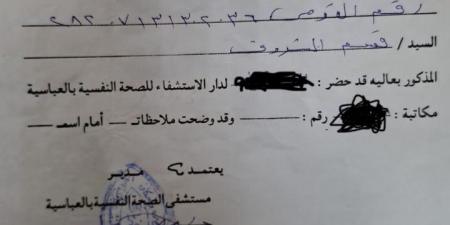 رقم القومى / ٢٨٢٠٧١٣١٣٢٠٣٦
السيد / قسم الشروق
المذكور بعاليه قد حضر : لدار الاستشفاء للصحة النفسية بالعباسية
مكاتبة : رقم : وقد وضحت ملاحظاتـ أمام اسمـ
يعتمد مدير
مستشفى الصحة النفسية بالعباسية